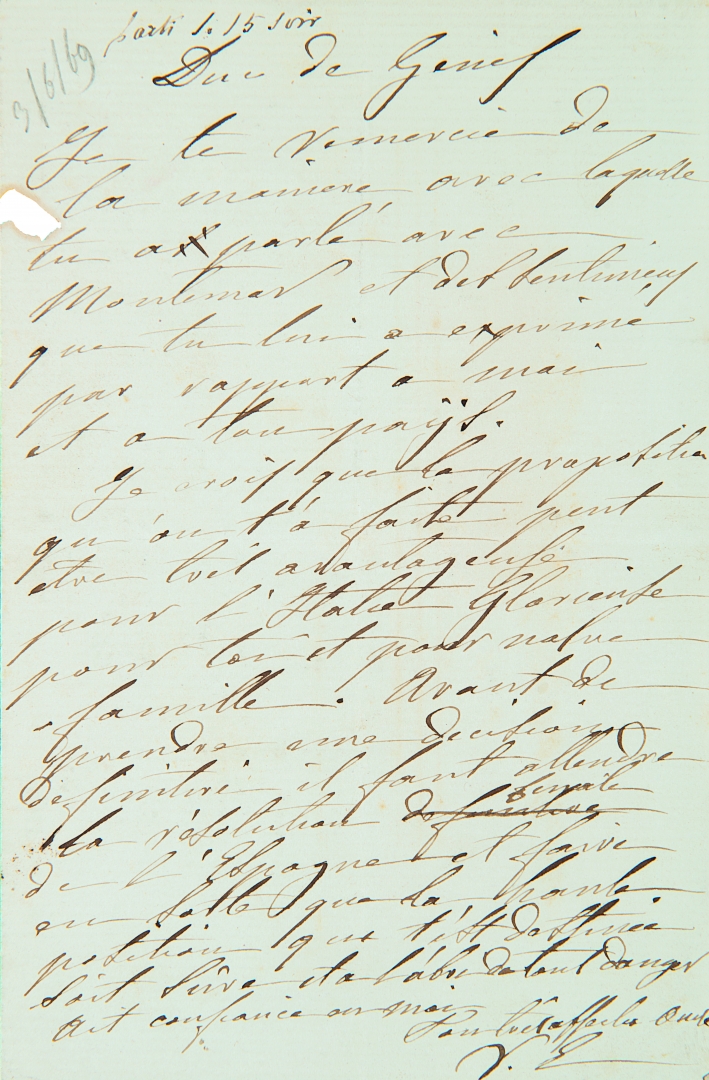 parti 1. 15 soir
3/6/69
Duc de Genes
Je te remercie de
la maniere avec laquelle
tu a parlé avec
Montemar et des sentiments
que tu lui a exprimé
par rapport a moi
et a ton païjs.
Je crois que la proposition
qu'on t'a faite peut
etre très avantageuse
pour l'Italie Glorieuse
pour toi et pour notre
famille. Avant de
prendre une decision
definitive il faut attendre
finale
la résolution definitive
de l'Espagne et faire
en sorte que la haute
position qui t'est destinée
soit sûre et a l'abri de tout danger
Ait confiance en moi
Ton très affectio Oncle
V. E